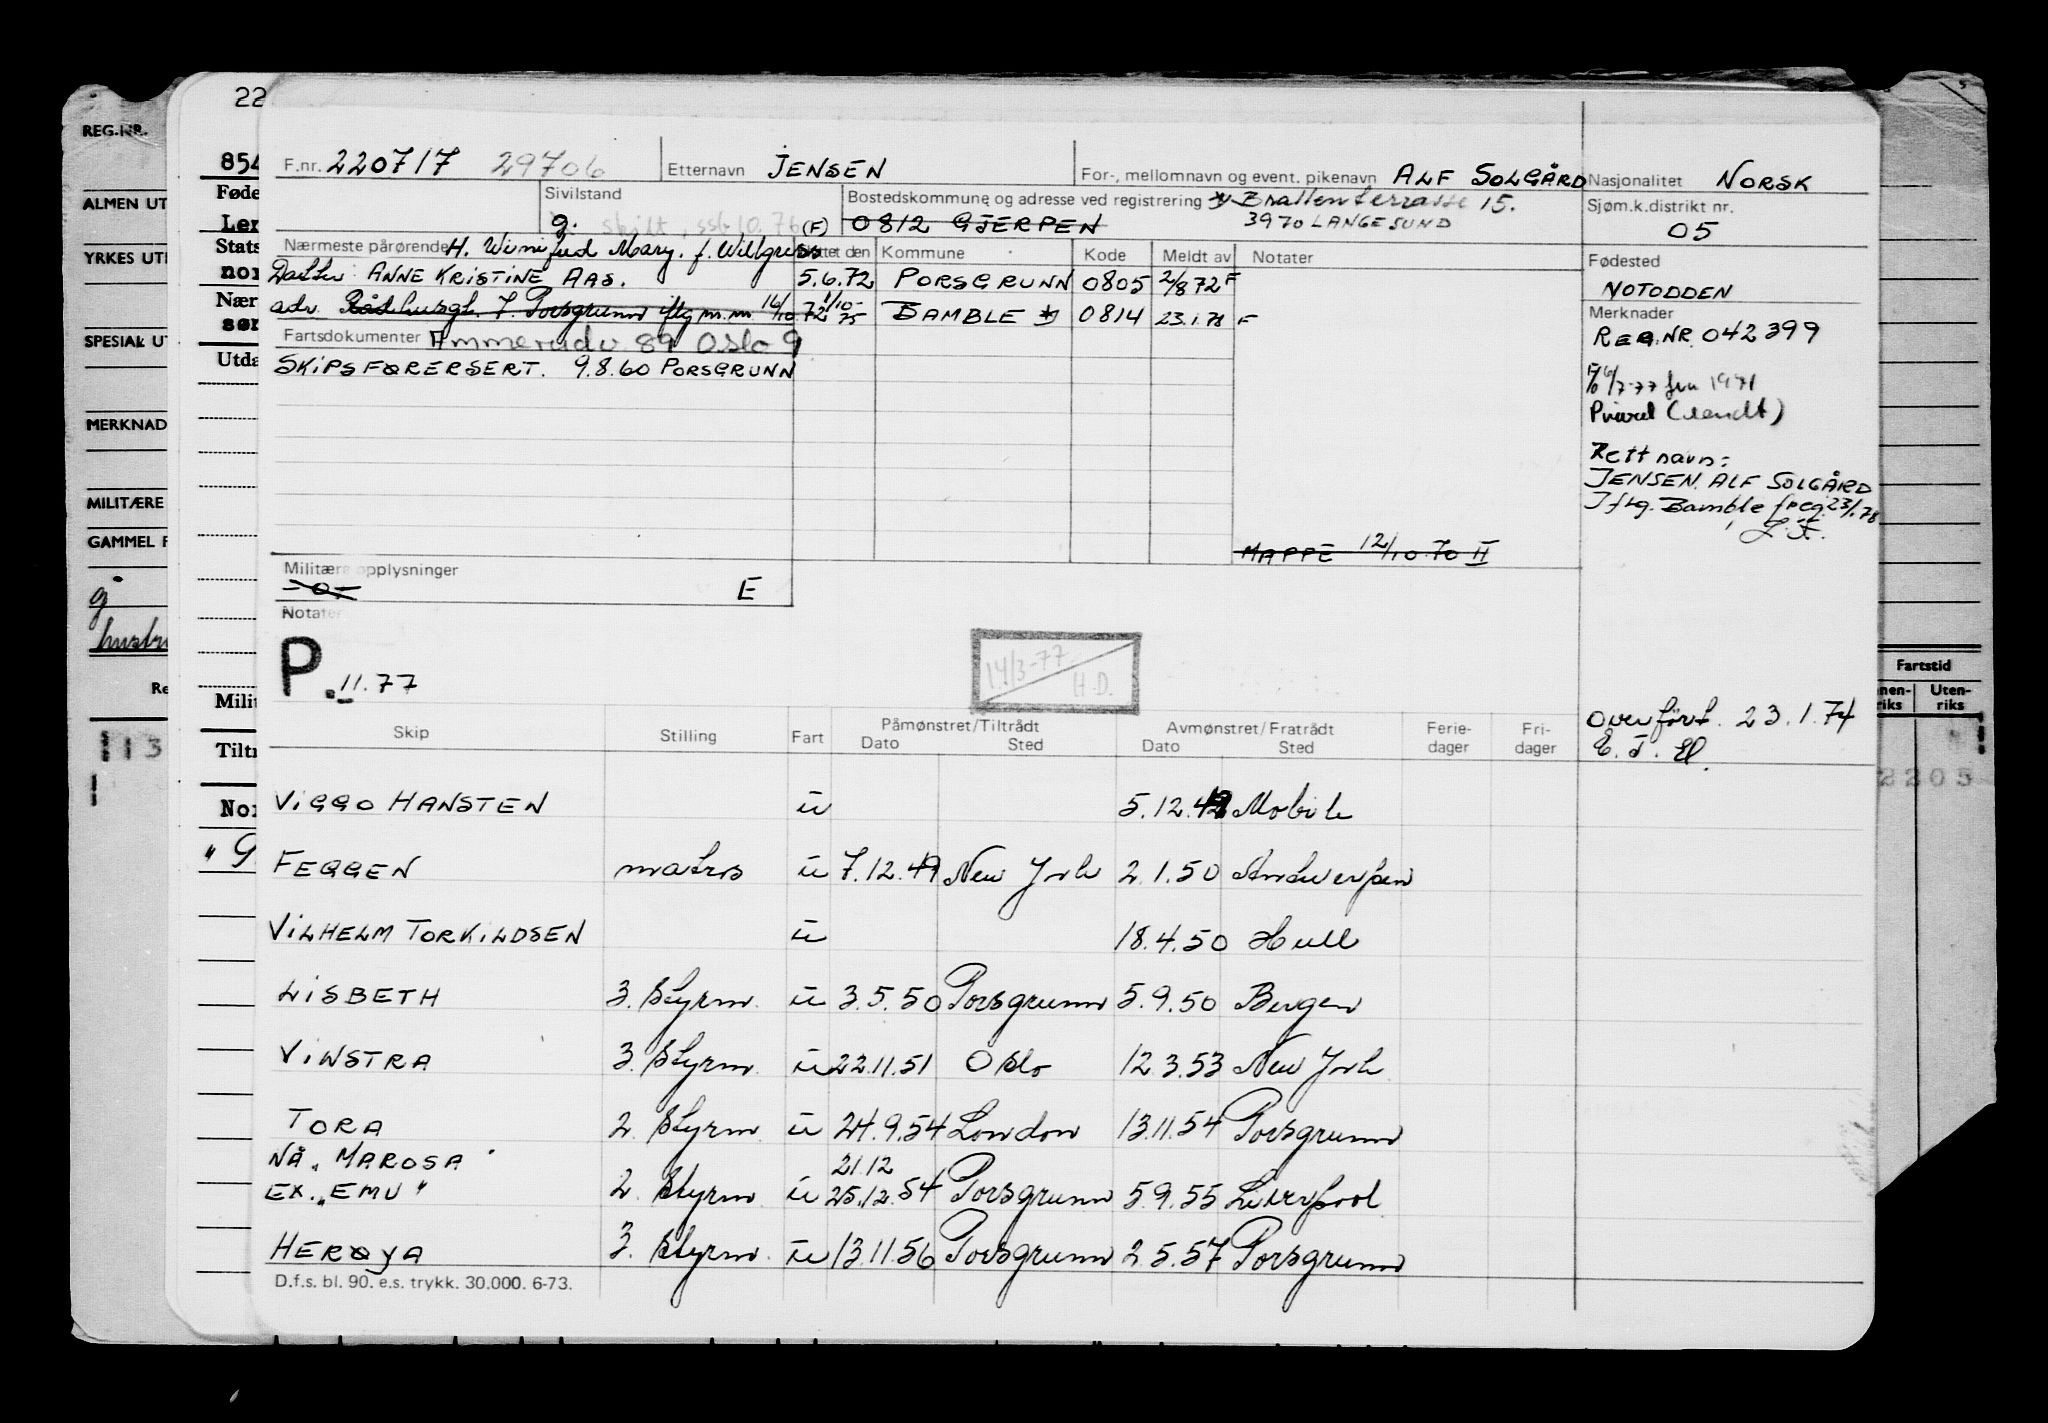 22
REG.NR.
ALMEN UT
YRKES UT
SPESIAL U
MERKNAD
MILITÆRE
GAMMEL F
g
hustru
Re
113
854
Føde
Stats
nor
Nær
sør
Utda
Milit
Tiltr
Nor
" G
Fartstid
nen-
riks
Uten-
riks
2205
F.nr. 220717 29706 Etternavn JENSEN For-, mellomnavn og event. pikenavn ALF SOLGÅRD Nasjonalitet NORSK
Sivilstand g. skilt, (F)
Bostedskommune og adresse ved registrering Brattenterrasse 15.
0812 GJERPEN 3970 LANGESUND
Sjøm.k.distrikt nr.
05
Nærmeste pårørende H. Winifred Mary. f. Willgress
Flyttet den Kommune Kode Meldt av Notater
Fødested
NOTODDEN
Datter ANNE KRISTINE AAS. 5.6.72 PORSGRUNN 0805 2/8 72 F
adr. Rådhusgt. 7. Porsgrunn iflg m.m. 16/10 72 1/10-75 BAMBLE *) 0814 23.1.78 F
Fartsdokumenter Ammerudv. 89 Oslo 9
SKIPSFØRERSERT. 9.8.60 PORSGRUNN
Merknader
REG.NR. 042399
6/7-77 fra 1971
Rett navn:
JENSEN, ALF SOLGÅRD
Iflg. Bamble f.reg. 23/1.78
MAPPE 12/10.70 II
Militære opplysninger
-0- E
Notater
P. 11.77
14/3-77
H.D.
Overført. 23.1.74
Skip Stilling Fart Påmønstret/Tiltrådt Dato Sted Avmønstret/Fratrådt Dato Sted Ferie-dager Fri-dager
VIGGO HANSTEN u 5.12.42 Mobile
FEGGEN matros u 7.12.49 New York 2.1.50 Antwerpen
VILHELM TORKILDSEN u 18.4.50 Hull
LISBETH 3. styrm. u 3.5.50 Porsgrunn 5.9.50 Bergen
VINSTRA 3. styrm. u 22.11.51 Oslo 12.3.53 New York
TORA 2. styrm. u 24.9.54 London 13.11.54 Porsgrunn
NÅ "MAROSA" 21.12
EX. "EMU" 2. styrm u 25.12.54 Porsgrunn 5.9.55 Liverpool
HERØYA 3. styrm. u 13.11.56 Porsgrunn 2.5.57 Porsgrunn
D.f.s. bl. 90. e.s. trykk. 30.000. 6-73.